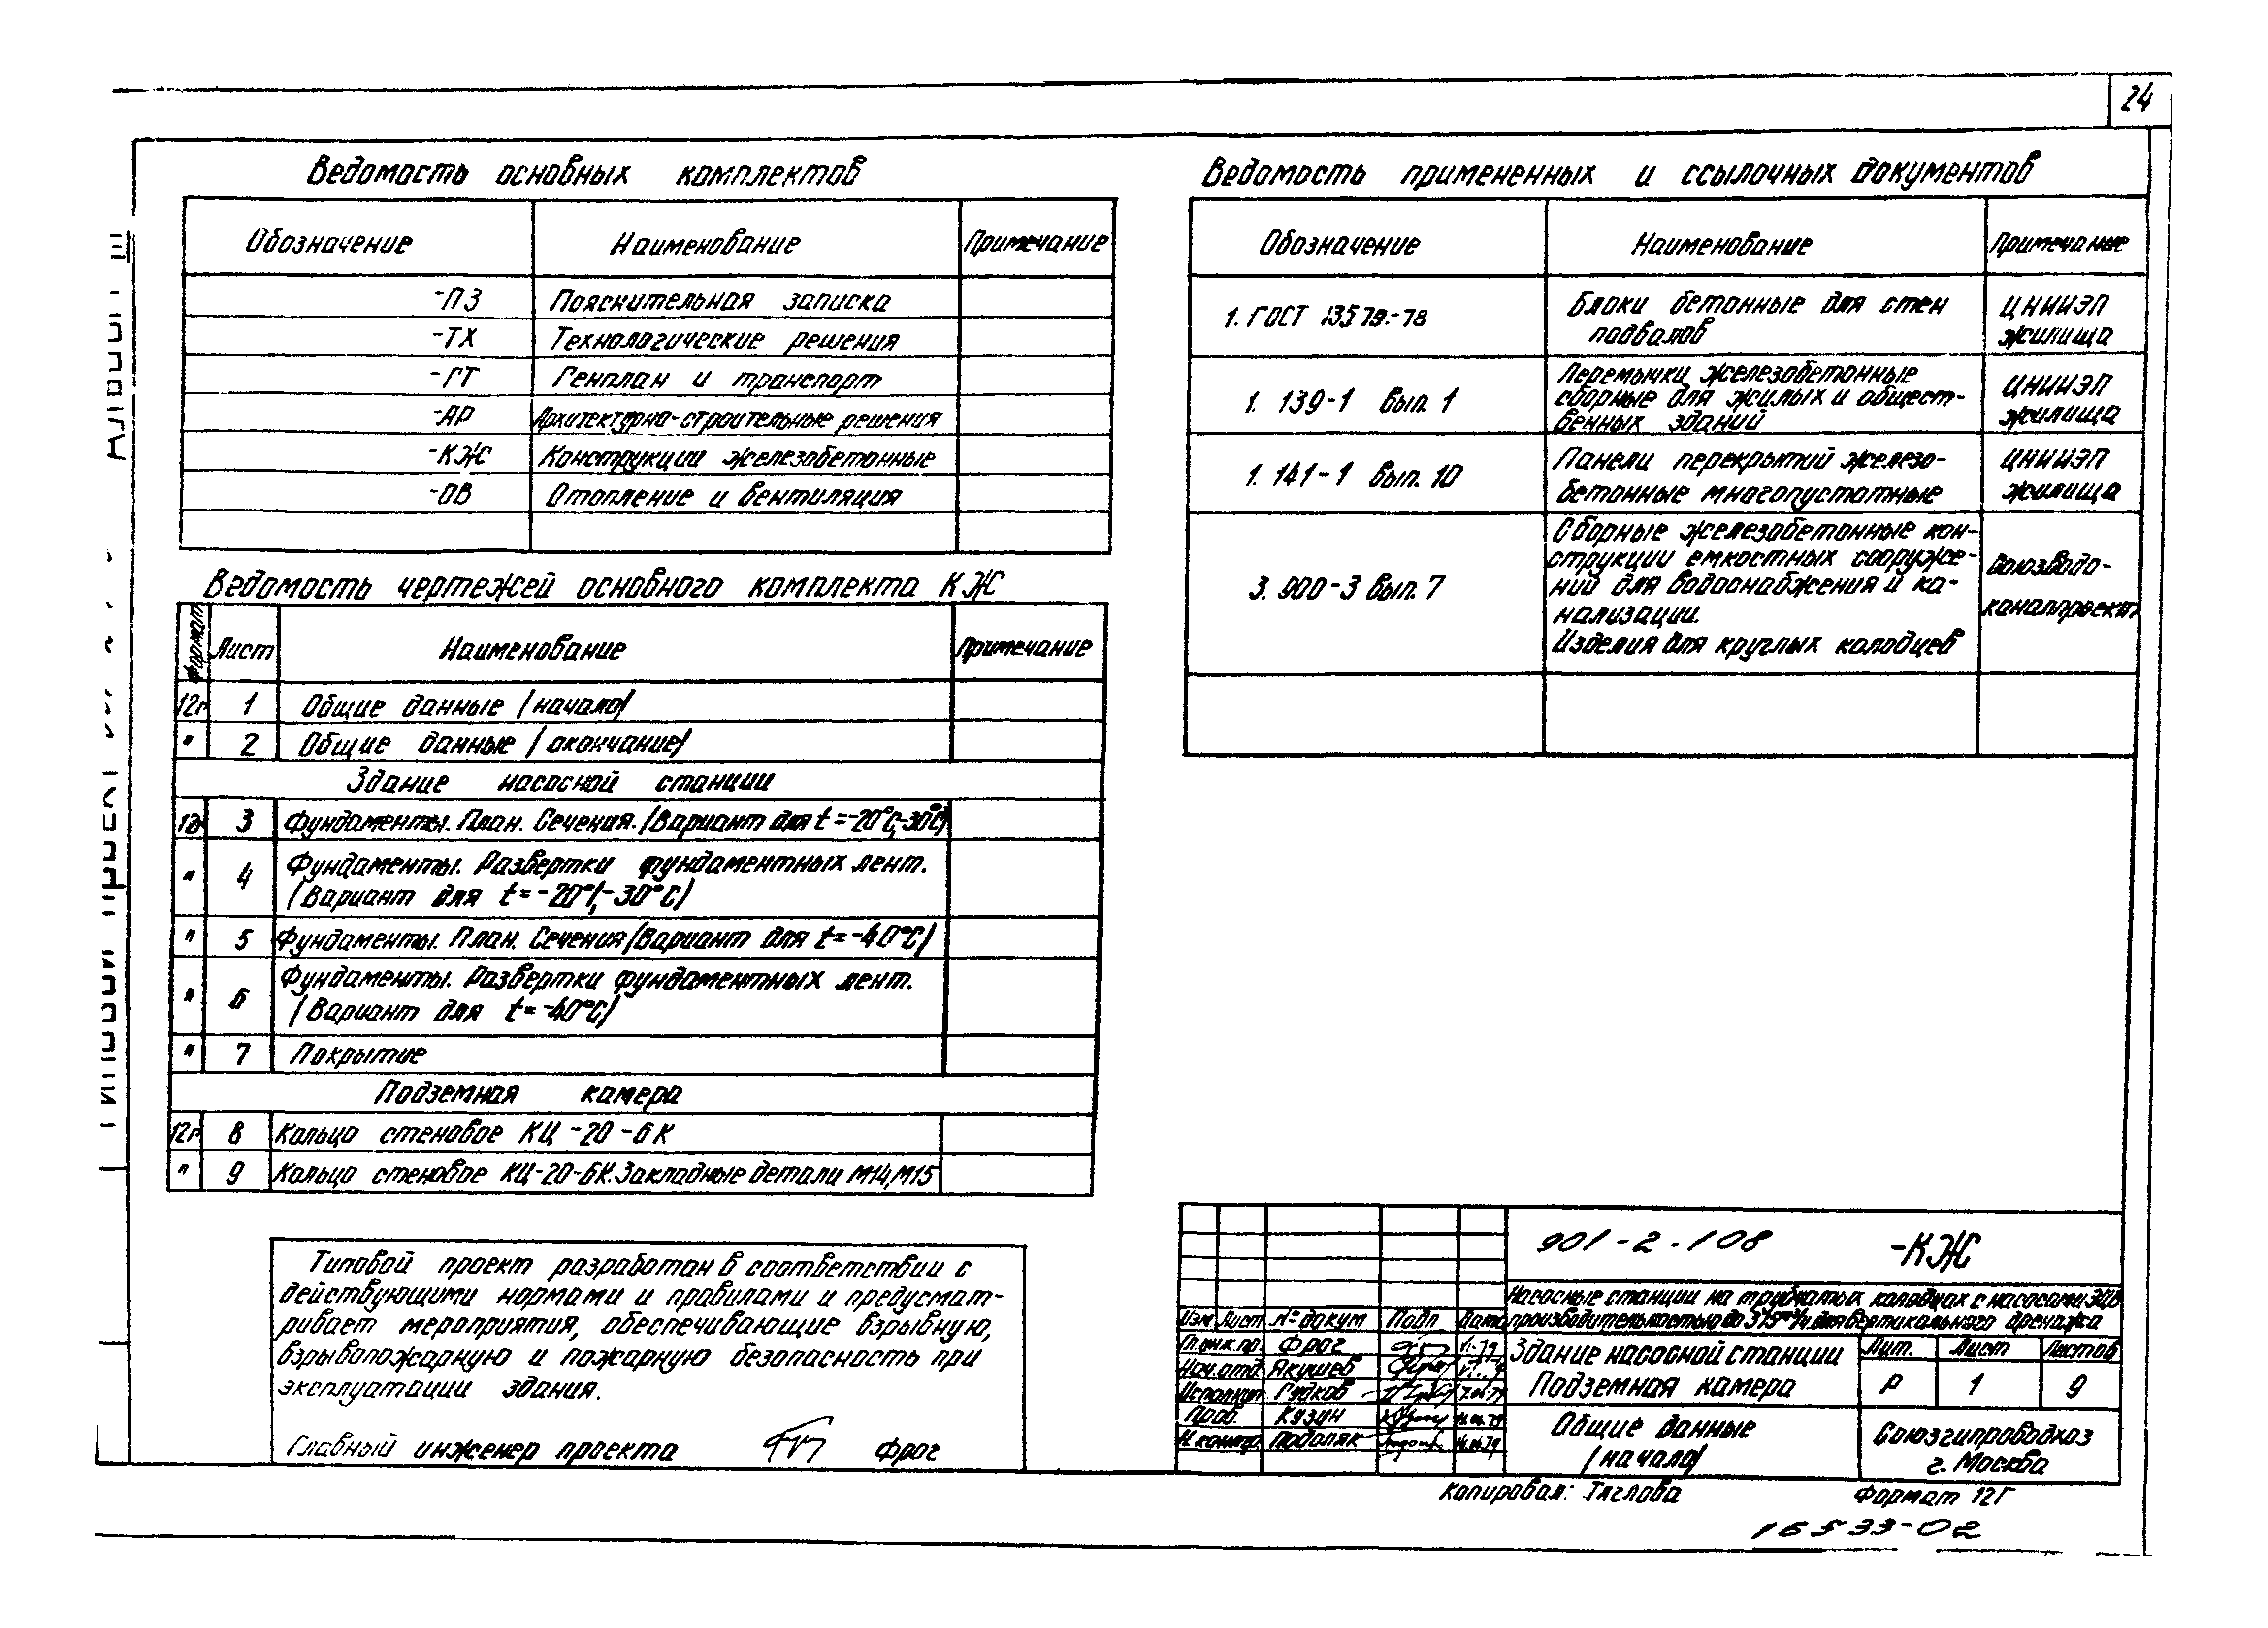 24
Ведомость основных комплектов
Обозначение Наименование Примечание
-ПЗ Пояснительная записка
-ТХ Технологические решения
-ГТ Генплан и транспорт
-АР Архитектурно-строительные решения
-КЖ Конструкции железобетонные
-ОВ Отопление и вентиляция
Ведомость чертежей основного комплекта КЖ
Формат Лист Наименование Примечание
12г 1 Общие данные /начало/
" 2 Общие данные /окончание/
Здание насосной станции
12г 3 Фундаменты. План. Сечения. /Вариант для t=-20°С,-30°С/
" 4 Фундаменты. Развертки фундаментных лент.
/Вариант для t=-20°,-30°С/
" 5 Фундаменты. План. Сечения /Вариант для t=-40°С/
" 6 Фундаменты. Развертки фундаментных лент.
/Вариант для t=-40°С/
" 7 Покрытие
Подземная камера
12г 8 Кольцо стеновое КЦ-20-6К
" 9 Кольцо стеновое КЦ-20-6К. Закладные детали М14, М15
Типовой проект разработан в соответствии с
действующими нормами и правилами и предусмат-
ривает мероприятия, обеспечивающие взрывную,
взрывопожарную и пожарную безопасность при
эксплуатации здания.
Главный инженер проекта Фрог
Ведомость примененных и ссылочных документов
Обозначение Наименование Примечание
1. ГОСТ 13579.-78 Блоки бетонные для стен
подвалов
ЦНИИЭП
жилища
1. 139-1 вып. 1 Перемычки железобетонные
сборные для жилых и общест-
венных зданий
ЦНИИЭП
жилища
1. 141-1 вып. 10 Панели перекрытий железо-
бетонные многопустотные
ЦНИИЭП
жилища
3. 900-3 вып. 7 Сборные железобетонные кон-
струкции емкостных сооруже-
ний для водоснабжения и ка-
нализации.
Изделия для круглых колодцев
Союзводо-
каналпроект
901-2-108 -КЖ
Насосные станции на трубчатых колодцах с насосами ЭЦВ
производительностью до 375 м³/ч для вертикального дренажа
Изм Лист № докум Подп Дата
Гл.инж.пр. Фрог
Нач.отд. Якушев
Исполнит. Гудков
Пров. Кузин
Н.контр. Подоляк
Здание насосной станции
Подземная камера
Лит. Лист Листов
Р 1 9
Общие данные
/начало/
Союзгипроводхоз
г. Москва
Копировал: Тяглова Формат 12Г
16533-02